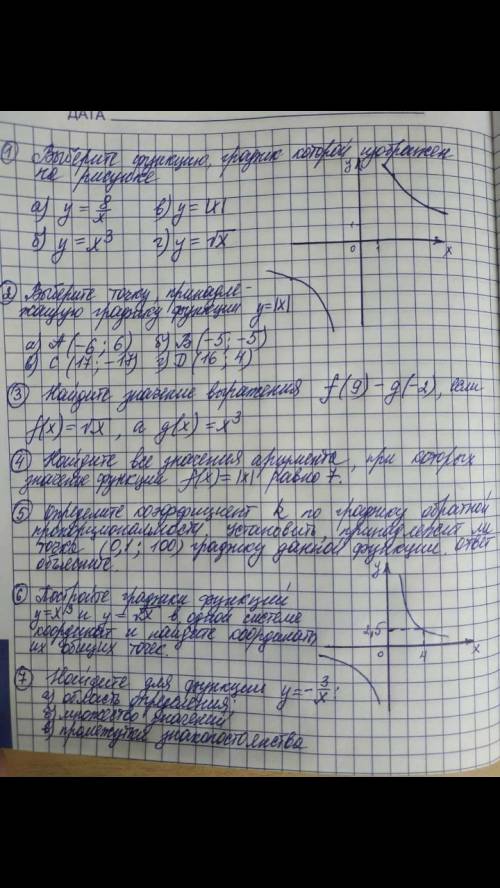 ДАТА
① Выберите функцию, график которой изображен
на рисунке
а) y = 8/x в) y = |x|
б) y = x³ г) y = √x
y
1
0 1 x
② Выберите точку, принадле-
жащую графику функции y=|x|
а) A(-6; 6) б) B(-5; -5)
в) C(17; -17) г) D(16; 4)
③ Найдите значение выражения f(9) - g(-2), если
f(x) = √x, а g(x) = x³
④ Найдите все значения аргумента, при которых
значение функции f(x) = |x| равно 7.
⑤ Определите коэффициент k по графику обратной
пропорциональности, установить, принадлежит ли
точка (0,1; 100) графику данной функции. Ответ
объясните.
y
2,5
0 4 x
⑥ Постройте графики функций
y=x³ и y = √x в одной системе
координат и найдите координаты
их общих точек.
⑦ Найдите для функции y = - 3/x;
а) область определения;
б) множество значений
в) промежутки знакопостоянства